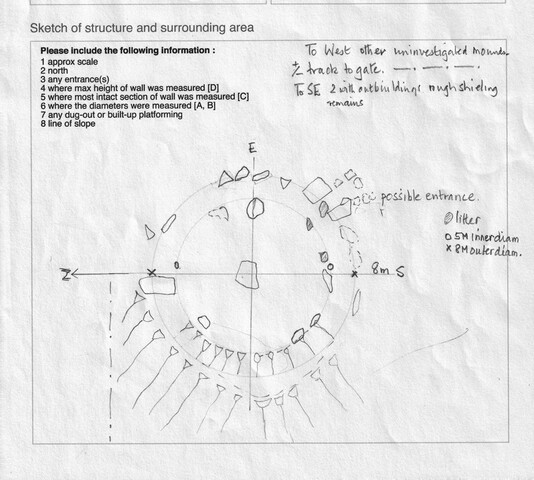 Sketch of structure and surrounding area
Please include the following information :
1 approx scale
2 north
3 any entrance(s)
4 where max height of wall was measured [D]
5 where most intact section of wall was measured [C]
6 where the diameters were measured [A, B]
7 any dug-out or built-up platforming
8 line of slope
To West other uninvestigated mounds.
track to gate.
To SE 2 with outbuildings rough shieling
remains
E
possible entrance.
litter
O 5M inner diam
x 8M outer diam.
N
8m S